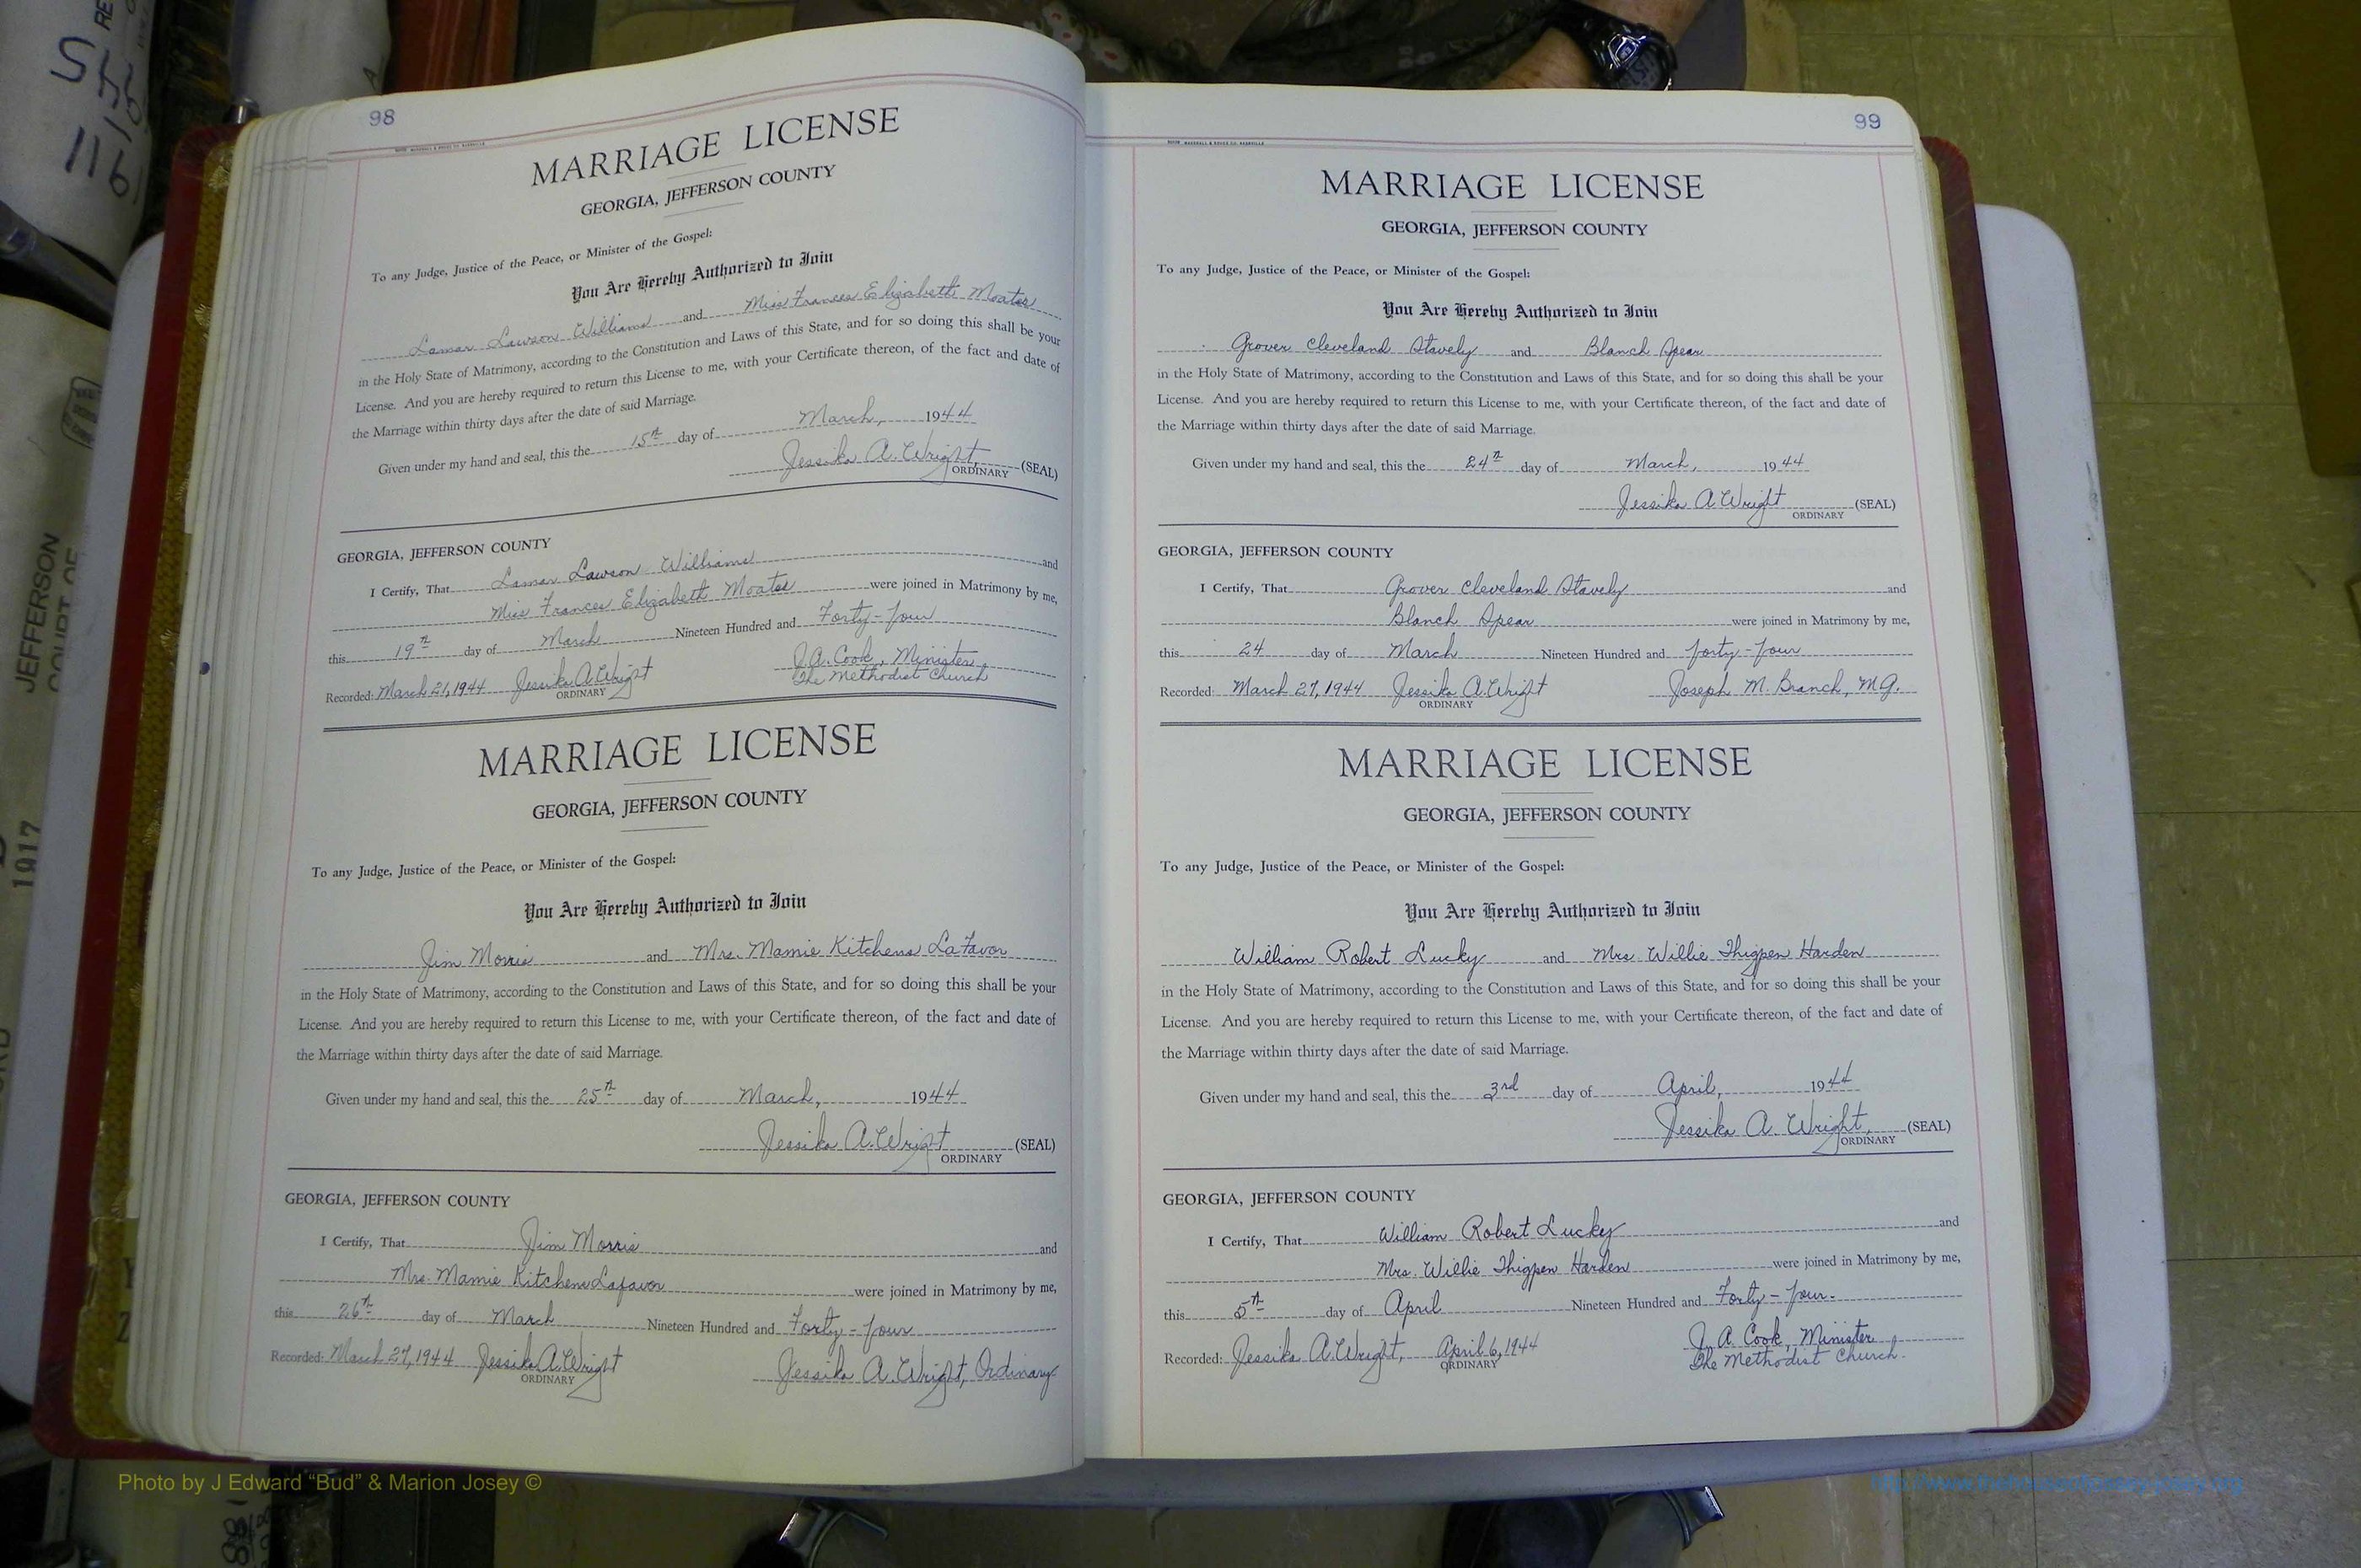 98
MARRIAGE LICENSE
GEORGIA, JEFFERSON COUNTY
To any Judge, Justice of the Peace, or Minister of the Gospel:
You Are Hereby Authorized to Join
Lamar Lawson Williams and Miss Frances Elizabeth Moates
in the Holy State of Matrimony, according to the Constitution and Laws of this State, and for so doing this shall be your
License. And you are hereby required to return this License to me, with your Certificate thereon, of the fact and date of
the Marriage within thirty days after the date of said Marriage.
Given under my hand and seal, this the 15th day of March, 1944
Jessika A. Wright (SEAL)
ORDINARY
GEORGIA, JEFFERSON COUNTY
I Certify, That Lamar Lawson Williams and
Miss Frances Elizabeth Moates were joined in Matrimony by me,
this 19th day of March Nineteen Hundred and Forty-four
Recorded: March 21, 1944 Jessika A. Wright J.A. Cook, Minister
ORDINARY The Methodist Church
MARRIAGE LICENSE
GEORGIA, JEFFERSON COUNTY
To any Judge, Justice of the Peace, or Minister of the Gospel:
You Are Hereby Authorized to Join
Jim Morris and Mrs. Mamie Kitchens LaFavor
in the Holy State of Matrimony, according to the Constitution and Laws of this State, and for so doing this shall be your
License. And you are hereby required to return this License to me, with your Certificate thereon, of the fact and date of
the Marriage within thirty days after the date of said Marriage.
Given under my hand and seal, this the 25th day of March, 1944
Jessika A. Wright (SEAL)
ORDINARY
GEORGIA, JEFFERSON COUNTY
I Certify, That Jim Morris and
Mrs. Mamie Kitchens Lafavor were joined in Matrimony by me,
this 26th day of March Nineteen Hundred and Forty-four
Recorded: March 27, 1944 Jessika A. Wright Jessika A. Wright, Ordinary
ORDINARY
99
MARRIAGE LICENSE
GEORGIA, JEFFERSON COUNTY
To any Judge, Justice of the Peace, or Minister of the Gospel:
You Are Hereby Authorized to Join
Grover Cleveland Stavely and Blanch Spear
in the Holy State of Matrimony, according to the Constitution and Laws of this State, and for so doing this shall be your
License. And you are hereby required to return this License to me, with your Certificate thereon, of the fact and date of
the Marriage within thirty days after the date of said Marriage.
Given under my hand and seal, this the 24th day of March, 1944
Jessika A. Wright (SEAL)
ORDINARY
GEORGIA, JEFFERSON COUNTY
I Certify, That Grover Cleveland Stavely and
Blanch Spear were joined in Matrimony by me,
this 24 day of March Nineteen Hundred and forty-four
Recorded: March 27, 1944 Jessika A. Wright Joseph M. Branch, M.G.
ORDINARY
MARRIAGE LICENSE
GEORGIA, JEFFERSON COUNTY
To any Judge, Justice of the Peace, or Minister of the Gospel:
You Are Hereby Authorized to Join
William Robert Lucky and Mrs. Willie Thigpen Harden
in the Holy State of Matrimony, according to the Constitution and Laws of this State, and for so doing this shall be your
License. And you are hereby required to return this License to me, with your Certificate thereon, of the fact and date of
the Marriage within thirty days after the date of said Marriage.
Given under my hand and seal, this the 3rd day of April, 1944
Jessika A. Wright, (SEAL)
ORDINARY
GEORGIA, JEFFERSON COUNTY
I Certify, That William Robert Lucky and
Mrs. Willie Thigpen Harden were joined in Matrimony by me,
this 5th day of April Nineteen Hundred and Forty-four.
Recorded: Jessika A. Wright, April 6, 1944 J. A. Cook, Minister
ORDINARY The Methodist Church.
JEFFERSON
COURT OF
1917
Photo by J Edward “Bud” & Marion Josey ©